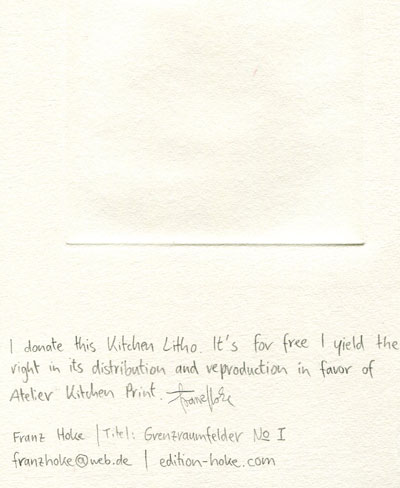 I donate this Kitchen Litho. It's for free I yield the
right in its distribution and reproduction in favor of
Atelier Kitchen Print. Franz Hoke
Franz Hoke | Titel: Grenzraumfelder No I
franzhoke@web.de | edition-hoke.com